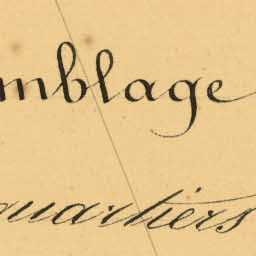 mblage
quartiers